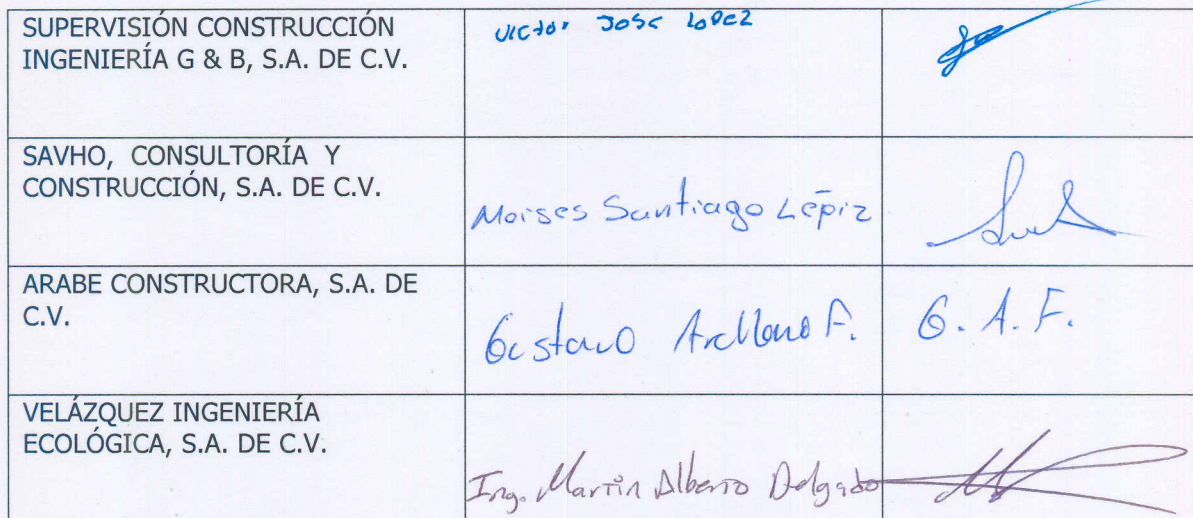 SUPERVISIÓN CONSTRUCCIÓN
INGENIERÍA G & B, S.A. DE C.V.
VICTOR JOSE LOPEZ
SAVHO, CONSULTORÍA Y
CONSTRUCCIÓN, S.A. DE C.V.
Moises Santiago Lépiz
ARABE CONSTRUCTORA, S.A. DE
C.V.
Gustavo Arellano F.
G. A. F.
VELÁZQUEZ INGENIERÍA
ECOLÓGICA, S.A. DE C.V.
Ing. Martin Alberto Delgado